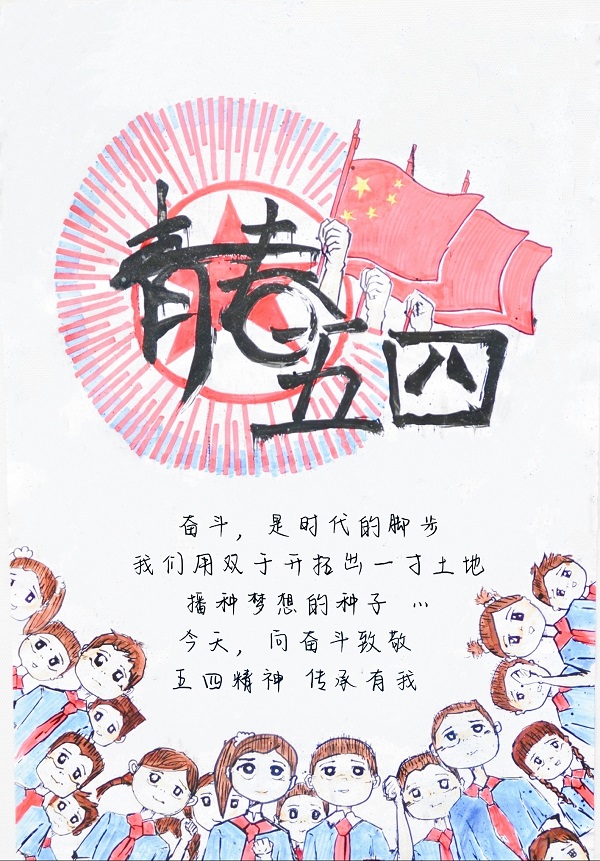 青春
五四
奋斗，是时代的脚步
我们用双于开拓出一寸土地
播种梦想的种子 …
今天，向奋斗致敬
五四精神 传承有我